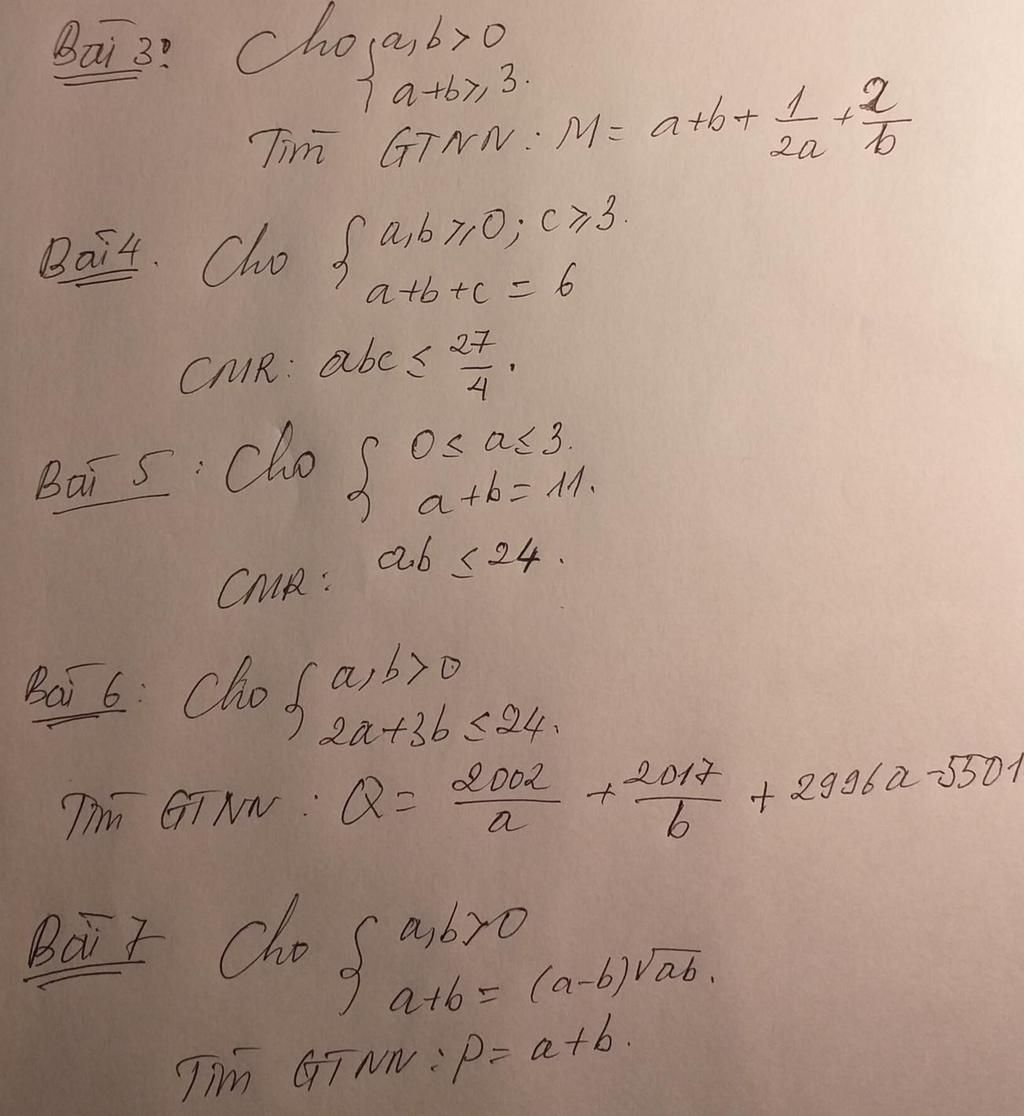 Bài 3: Cho { a,b > 0
a+b ≥ 3.
Tìm GTNN: M = a+b+ 1/2a + 2/b
Bài 4. Cho { a,b ≥ 0; c ≥ 3.
a+b+c = 6
CMR: abc ≤ 27/4.
Bài 5: Cho { 0 ≤ a ≤ 3.
a+b = 11.
CMR: a.b ≤ 24.
Bài 6: Cho { a,b > 0
2a+3b ≤ 24.
Tìm GTNN: Q = 2002/a + 2017/b + 2996a - 5501
Bài 7 Cho { a,b > 0
a+b = (a-b)√ab.
Tìm GTNN: P = a+b.